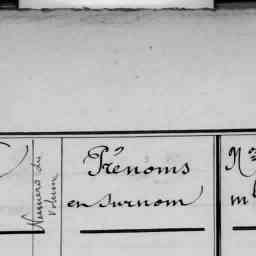 Numéro du
Volume
Prénoms
en surnom